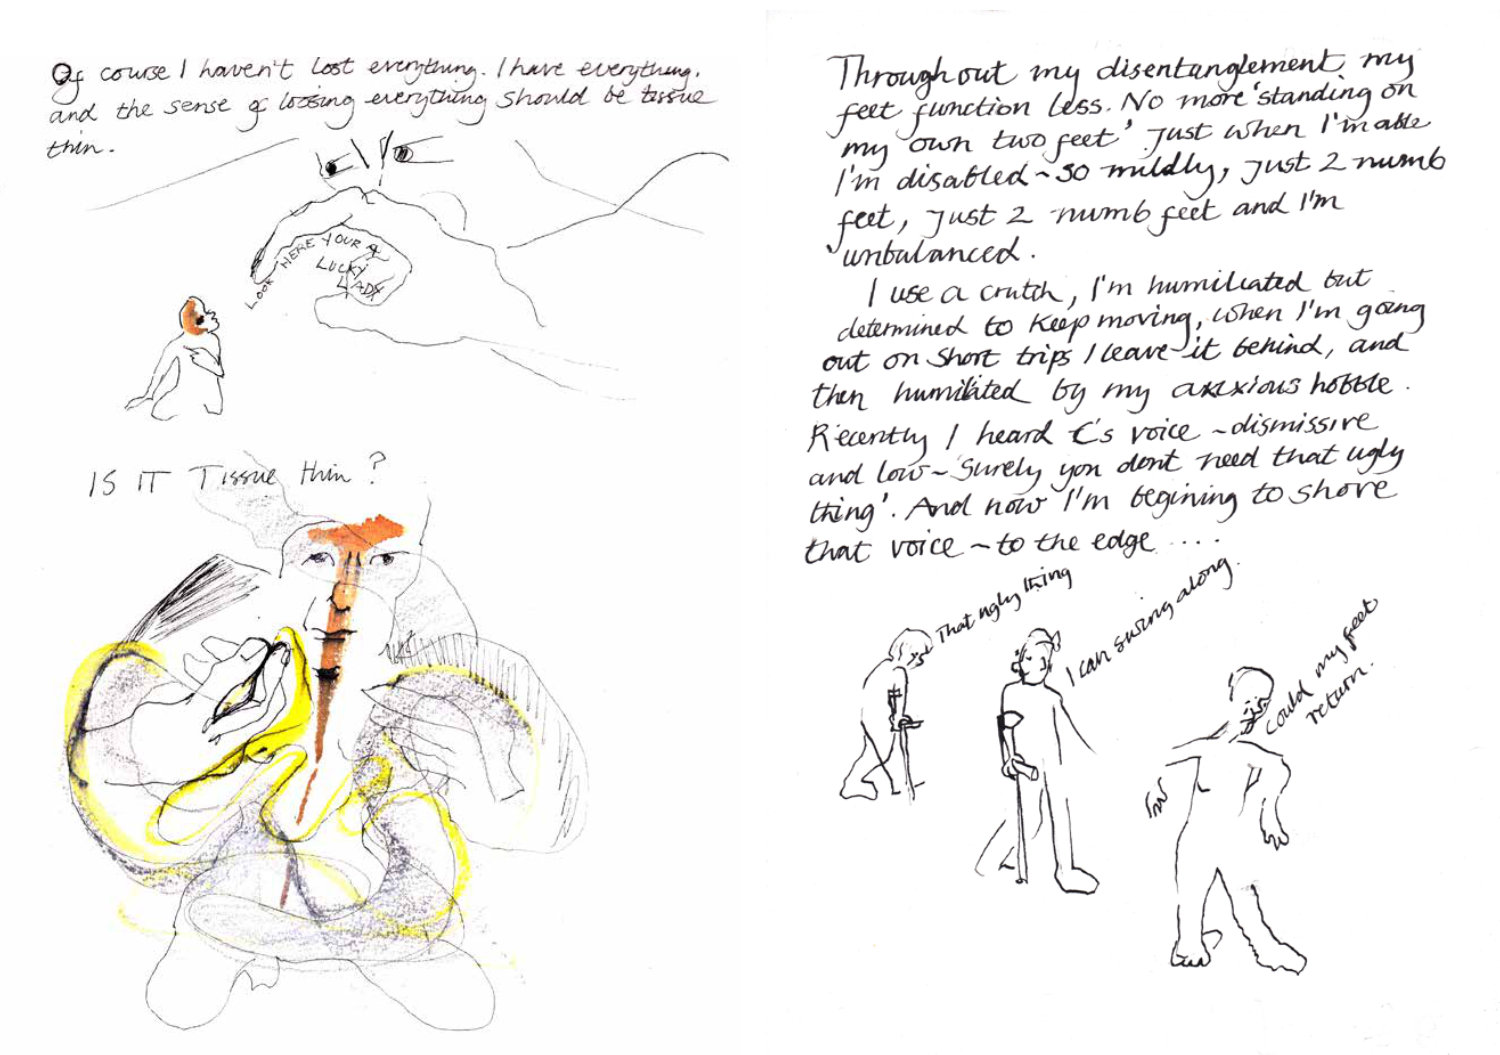 Of course I haven't lost everything. I have everything.
and the sense of loosing everything should be tissue
thin.
LOOK HERE YOUR A
LUCKY
LADY
IS IT Tissue thin?
Throughout my disentanglement my
feet function less. No more 'standing on
my own two feet' Just when I'm able
I'm disabled ~ so mildly, just 2 numb
feet, just 2 numb feet and I'm
unbalanced.
I use a crutch, I'm humiliated but
determined to keep moving, when I'm going
out on short trips I leave it behind, and
then humiliated by my anxious hobble.
Recently I heard C's voice ~ dismissive
and low ~ 'Surely you dont need that ugly
thing'. And now I'm begining to shove
that voice ~ to the edge ....
That ugly thing
I can swing along.
Could my feet
return.